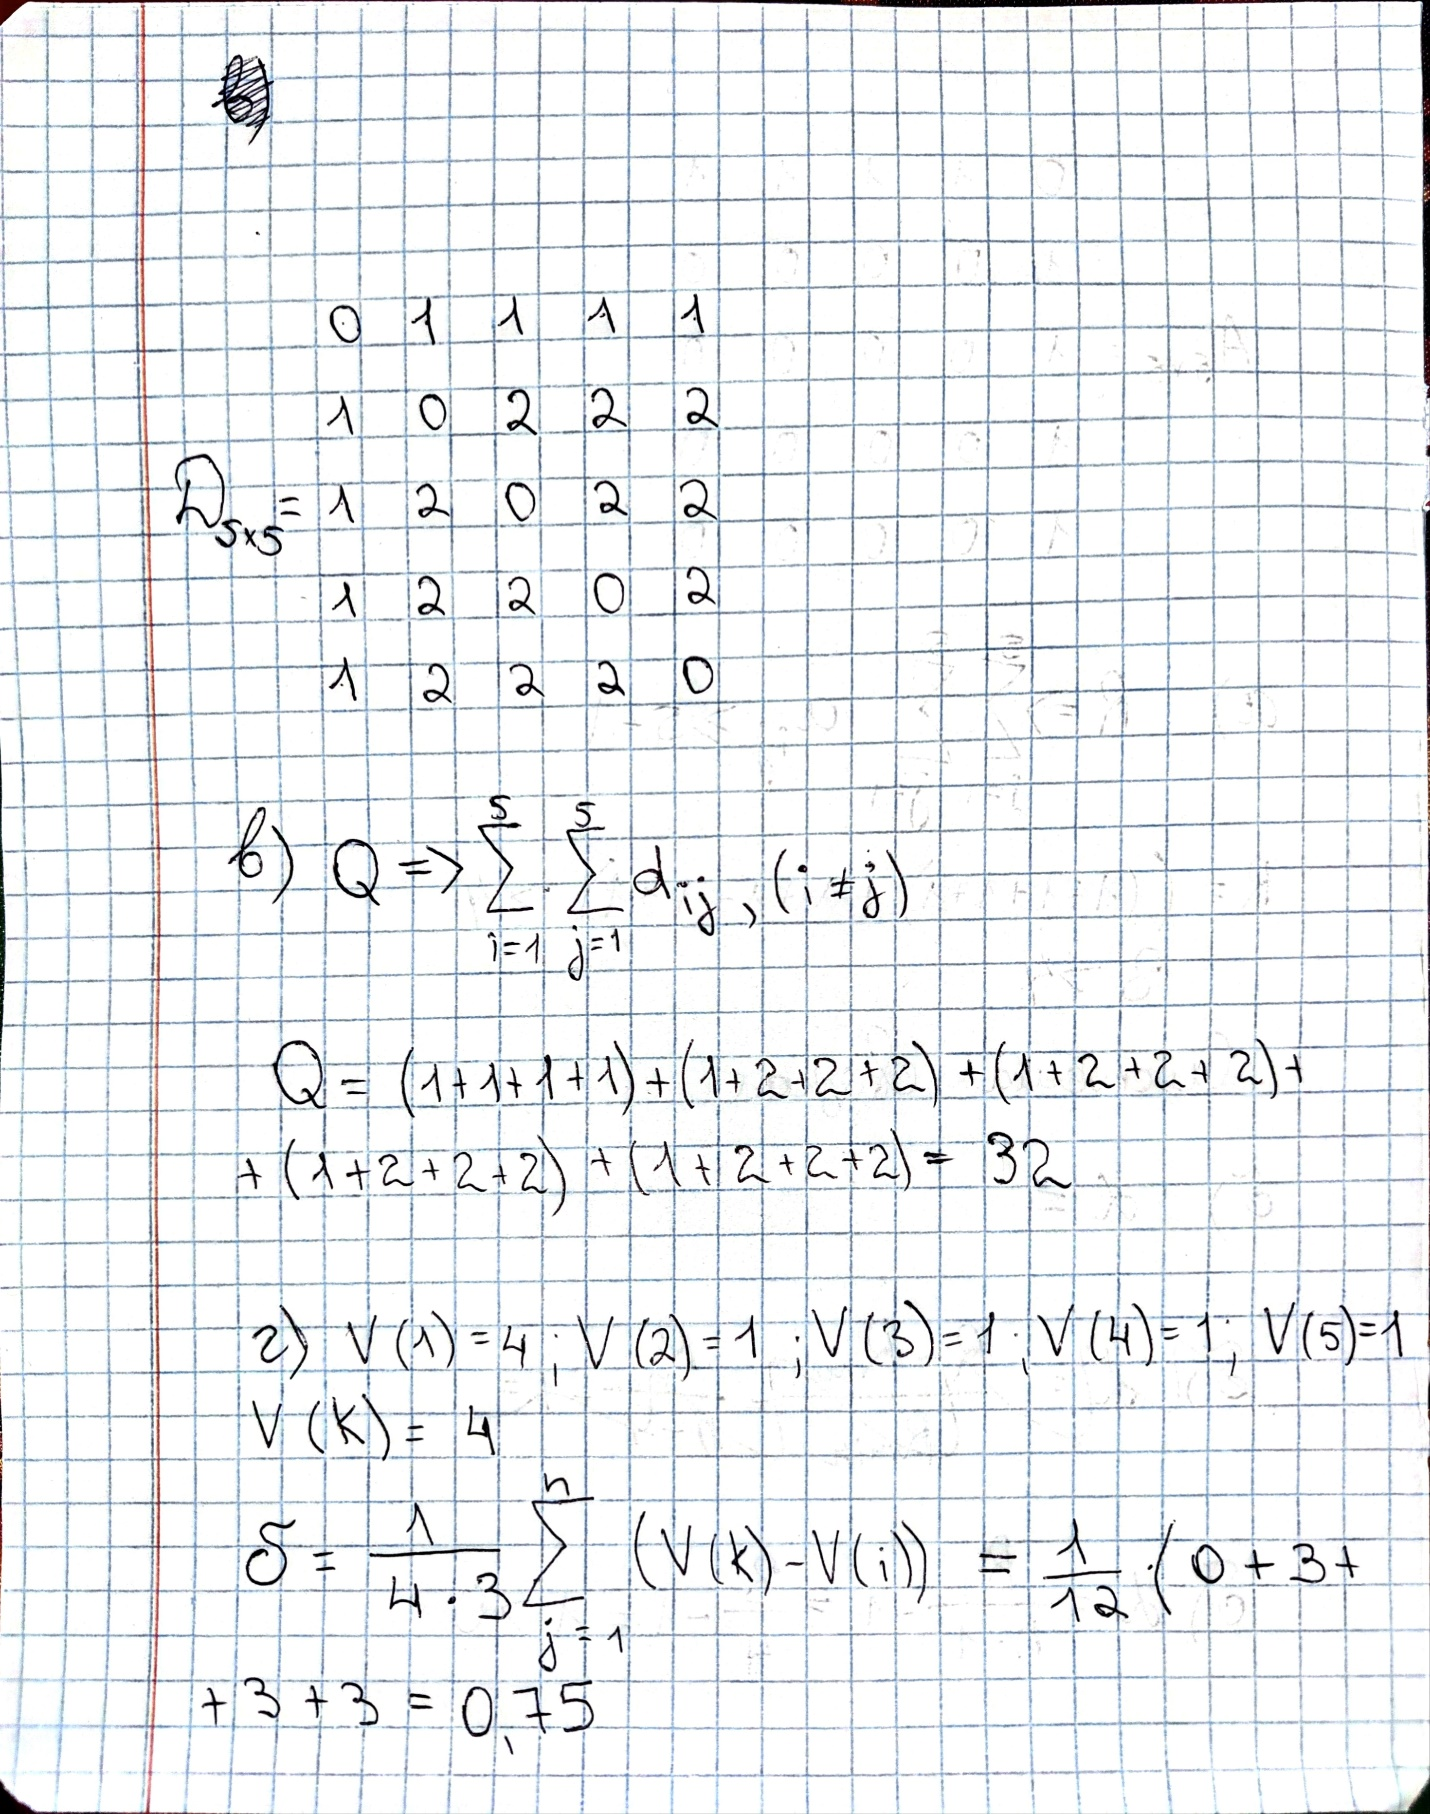 0 1 1 1 1
1 0 2 2 2
D₅ₓ₅ = 1 2 0 2 2
1 2 2 0 2
1 2 2 2 0
в) Q => ∑_{i=1}^{5} ∑_{j=1}^{5} d_{ij}, (i ≠ j)
Q = (1+1+1+1)+(1+2+2+2)+(1+2+2+2)+
+(1+2+2+2)+(1+2+2+2) = 32
г) V(1)=4; V(2)=1; V(3)=1; V(4)=1; V(5)=1
V(k) = 4
δ = \frac{1}{4·3} ∑_{j=1}^{n} (V(k)-V(i)) = \frac{1}{12}·(0+3+
+3+3 = 0,75